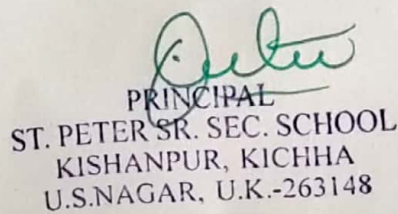 PRINCIPAL
ST. PETER SR. SEC. SCHOOL
KISHANPUR, KICHHA
U.S.NAGAR, U.K.-263148